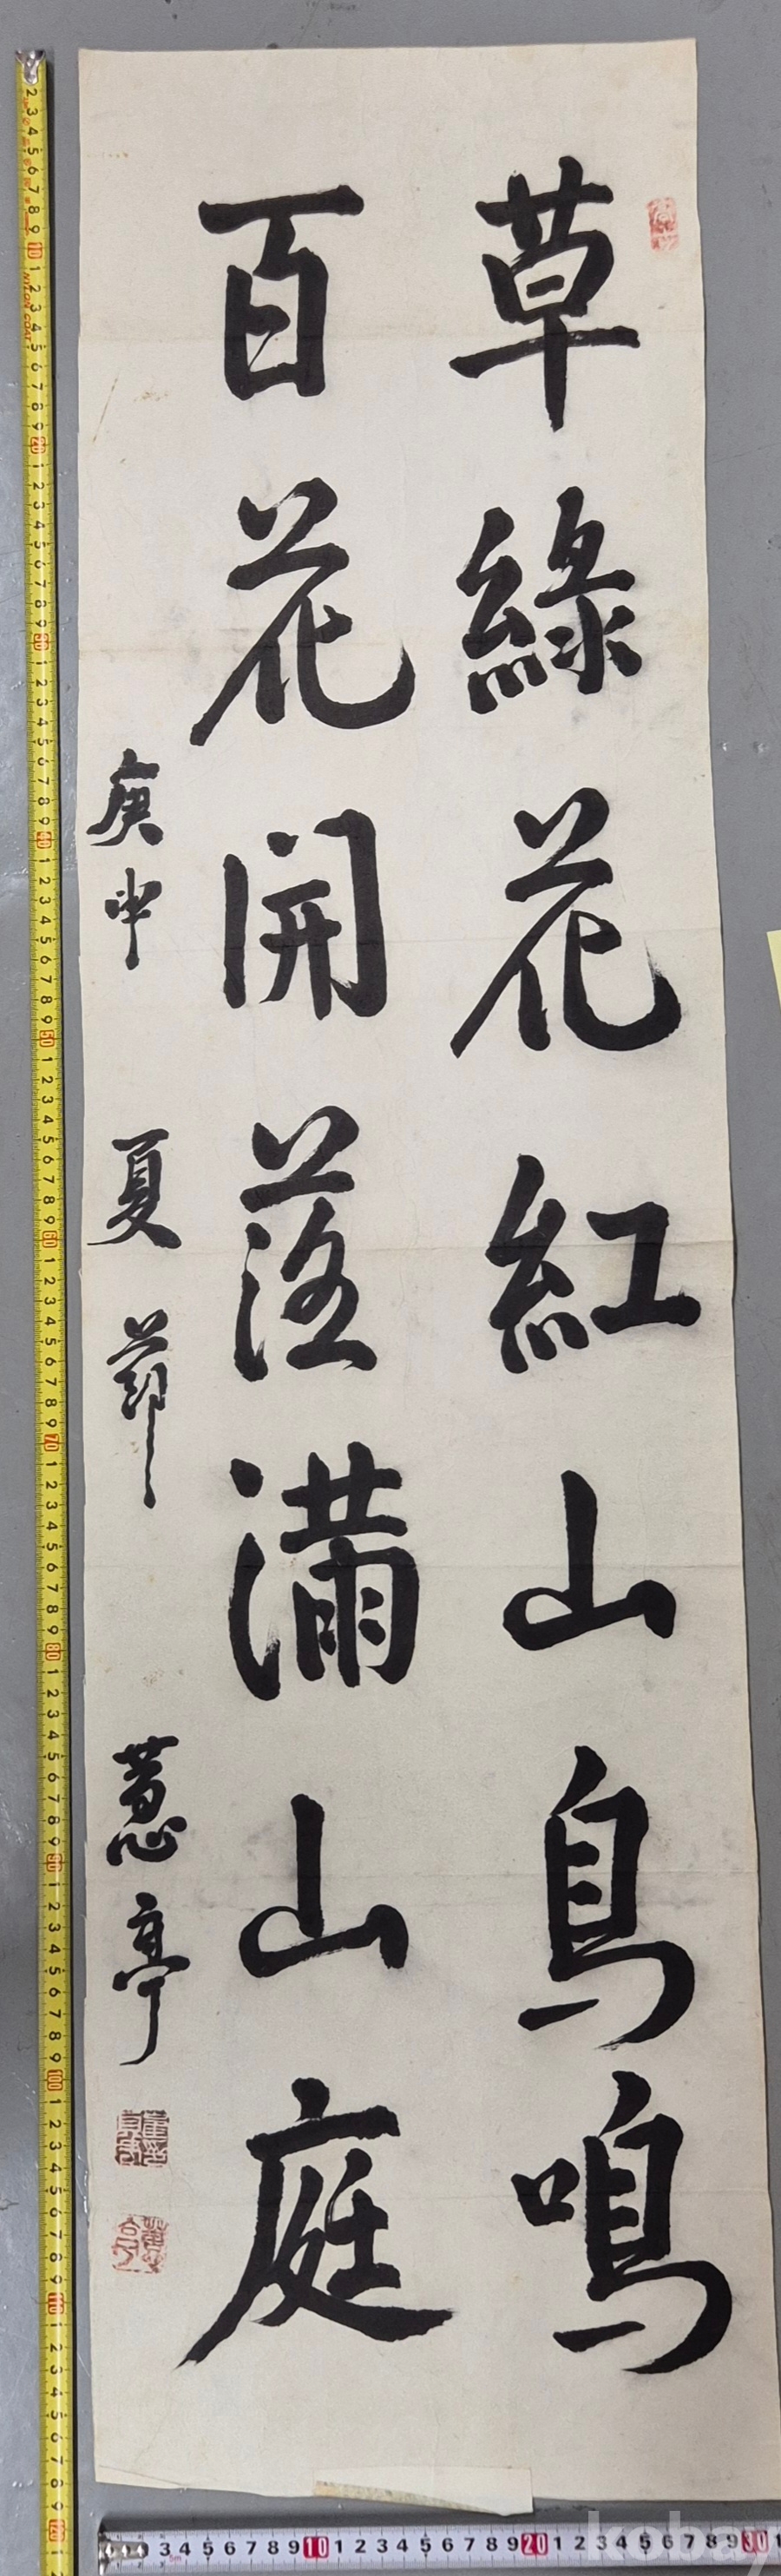 草綠花紅山鳥鳴
百花開落滿山庭
庚申 夏節 蕙亭
NYLON COAT
kobay